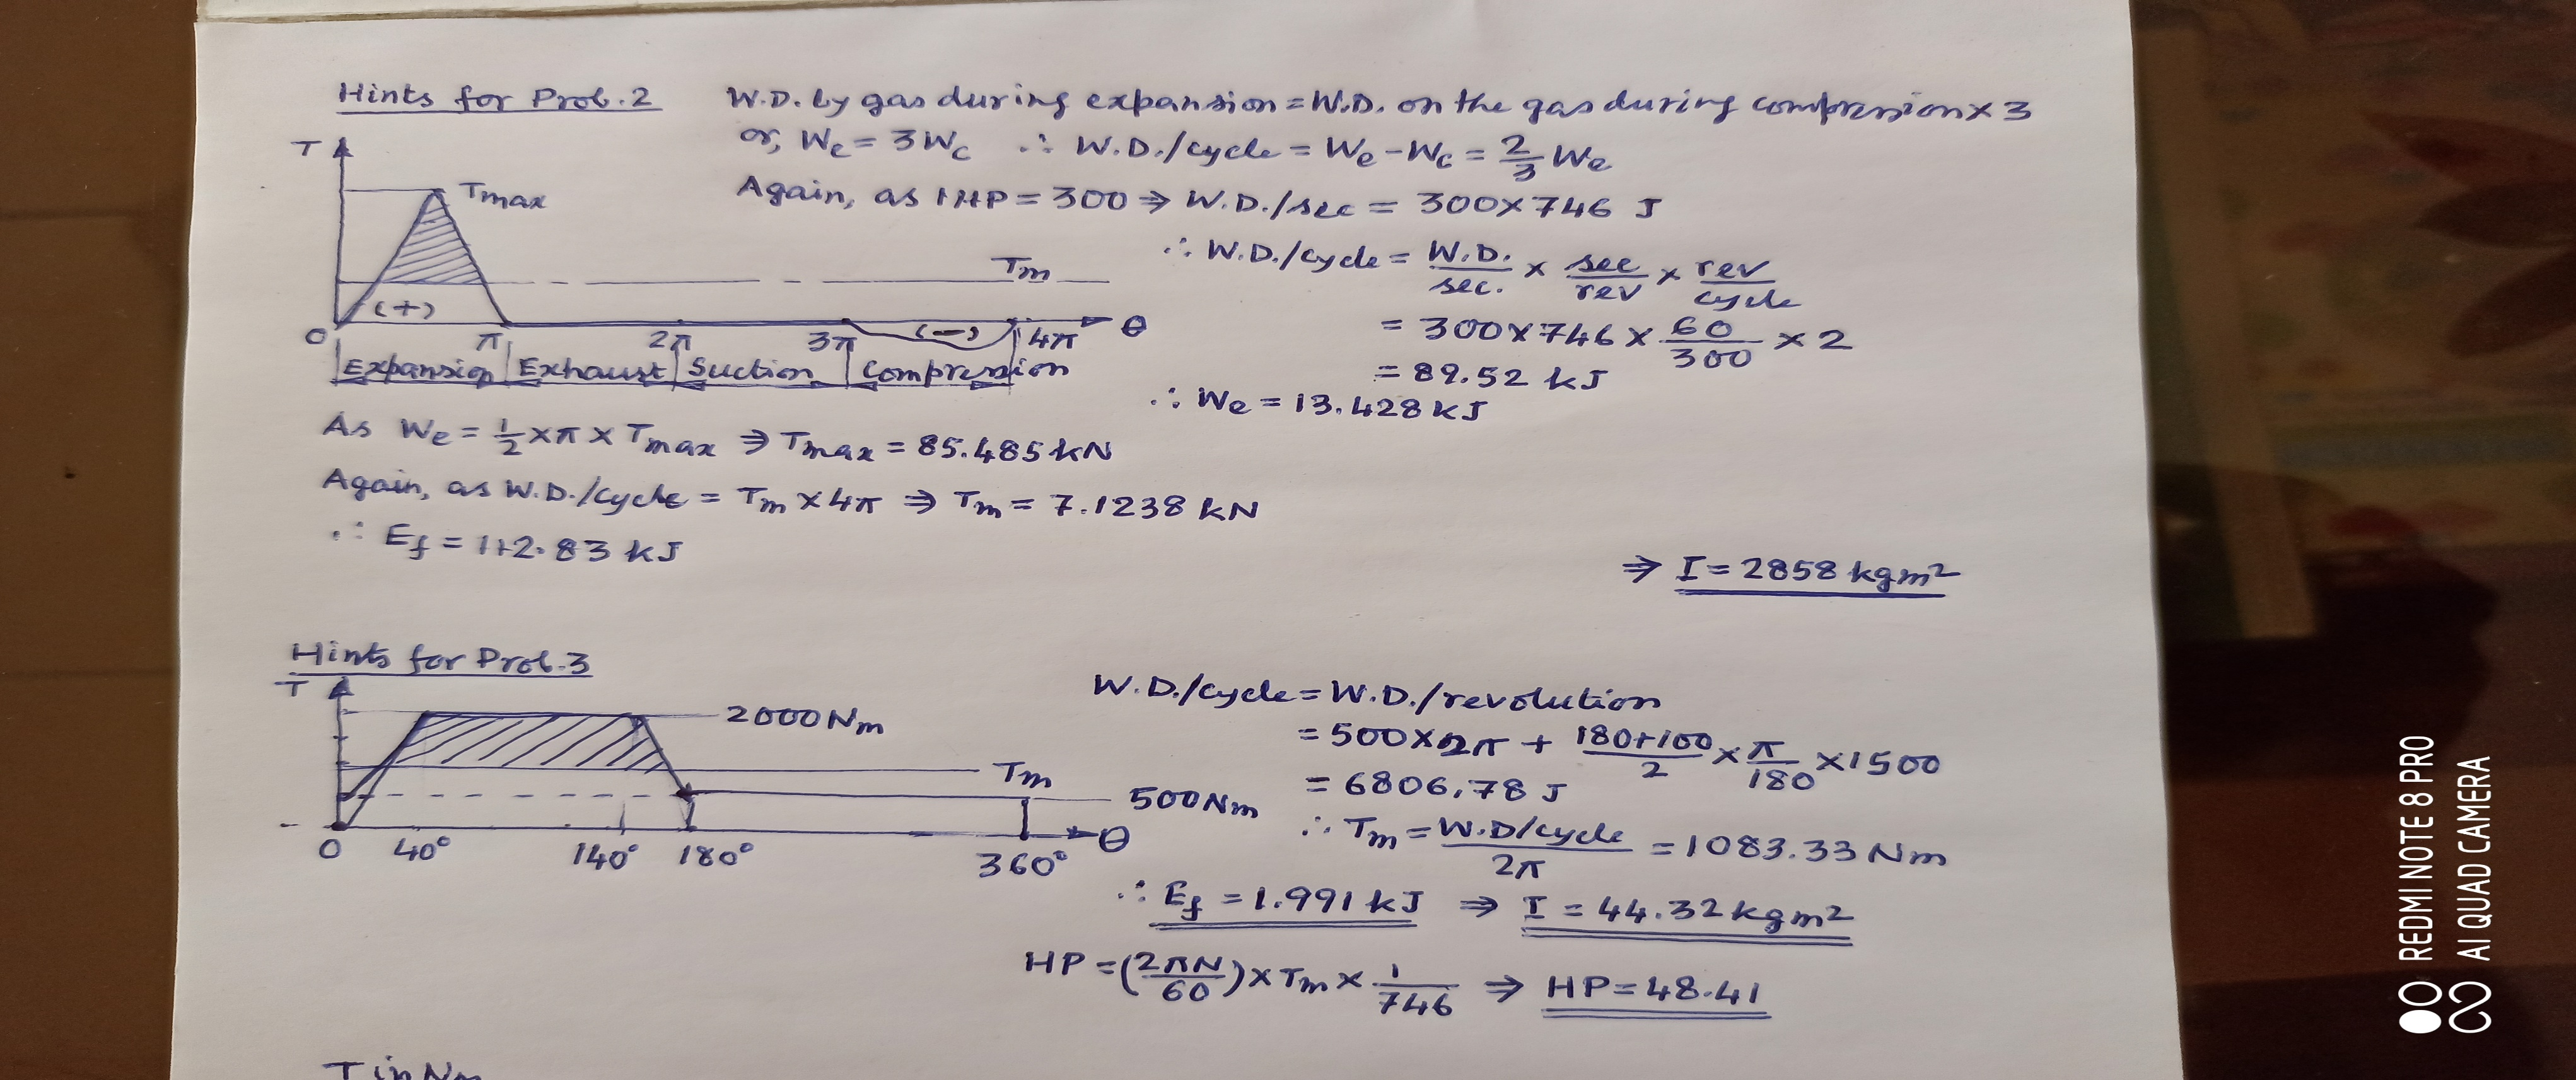 Hints for Prob.2
W.D. by gas during expansion = W.D. on the gas during compression x 3
or, We = 3Wc ∴ W.D./cycle = We - Wc = 2/3 We
Again, as IHP = 300 ⇒ W.D./sec = 300x746 J
∴ W.D./cycle = W.D./sec. x sec/rev x rev/cycle
= 300x746x 60/300 x 2
= 89.52 kJ
∴ We = 13.428 kJ
T
Tmax
Tm
(+)
(-)
0 π 2π 3π 4π θ
Expansion Exhaust Suction Compression
As We = 1/2 xπx Tmax ⇒ Tmax = 85.485 kN
Again, as W.D./cycle = Tm x4π ⇒ Tm = 7.1238 kN
∴ Ef = 112.83 kJ
⇒ I = 2858 kgm²
Hints for Prob.3
T
2000 Nm
Tm
500 Nm
0 40° 140° 180° 360° θ
W.D./cycle = W.D./revolution
= 500x2π + (180+100)/2 x π/180 x1500
= 6806.78 J
∴ Tm = W.D/cycle / 2π = 1083.33 Nm
∴ Ef = 1.991 kJ ⇒ I = 44.32 kgm²
HP = (2πN/60) x Tm x 1/746 ⇒ HP = 48.41
T in Nm
REDMI NOTE 8 PRO
AI QUAD CAMERA